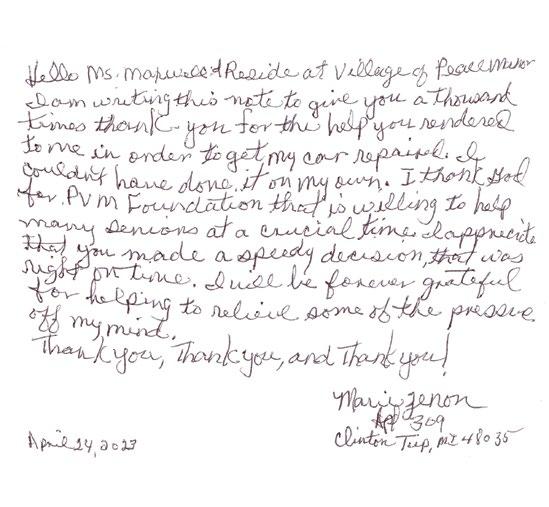 Hello Ms. Maxwell I Reside at Village of Peace Manor
I am writing this note to give you a thousand
times thank you for the help you rendered
to me in order to get my car repaired. I
couldn't have done it on my own. I thank God
for PVM Foundation that is willing to help
many seniors at a crucial time. I apprecite
that you made a speedy decision, that was
right on time. I will be forever grateful
for helping to relieve some of the pressure
off my mind.
Thank you, Thank you, and Thank you!
Marie Zenon
Apt 309
April 24, 2023
Clinton Twp, MI 48035